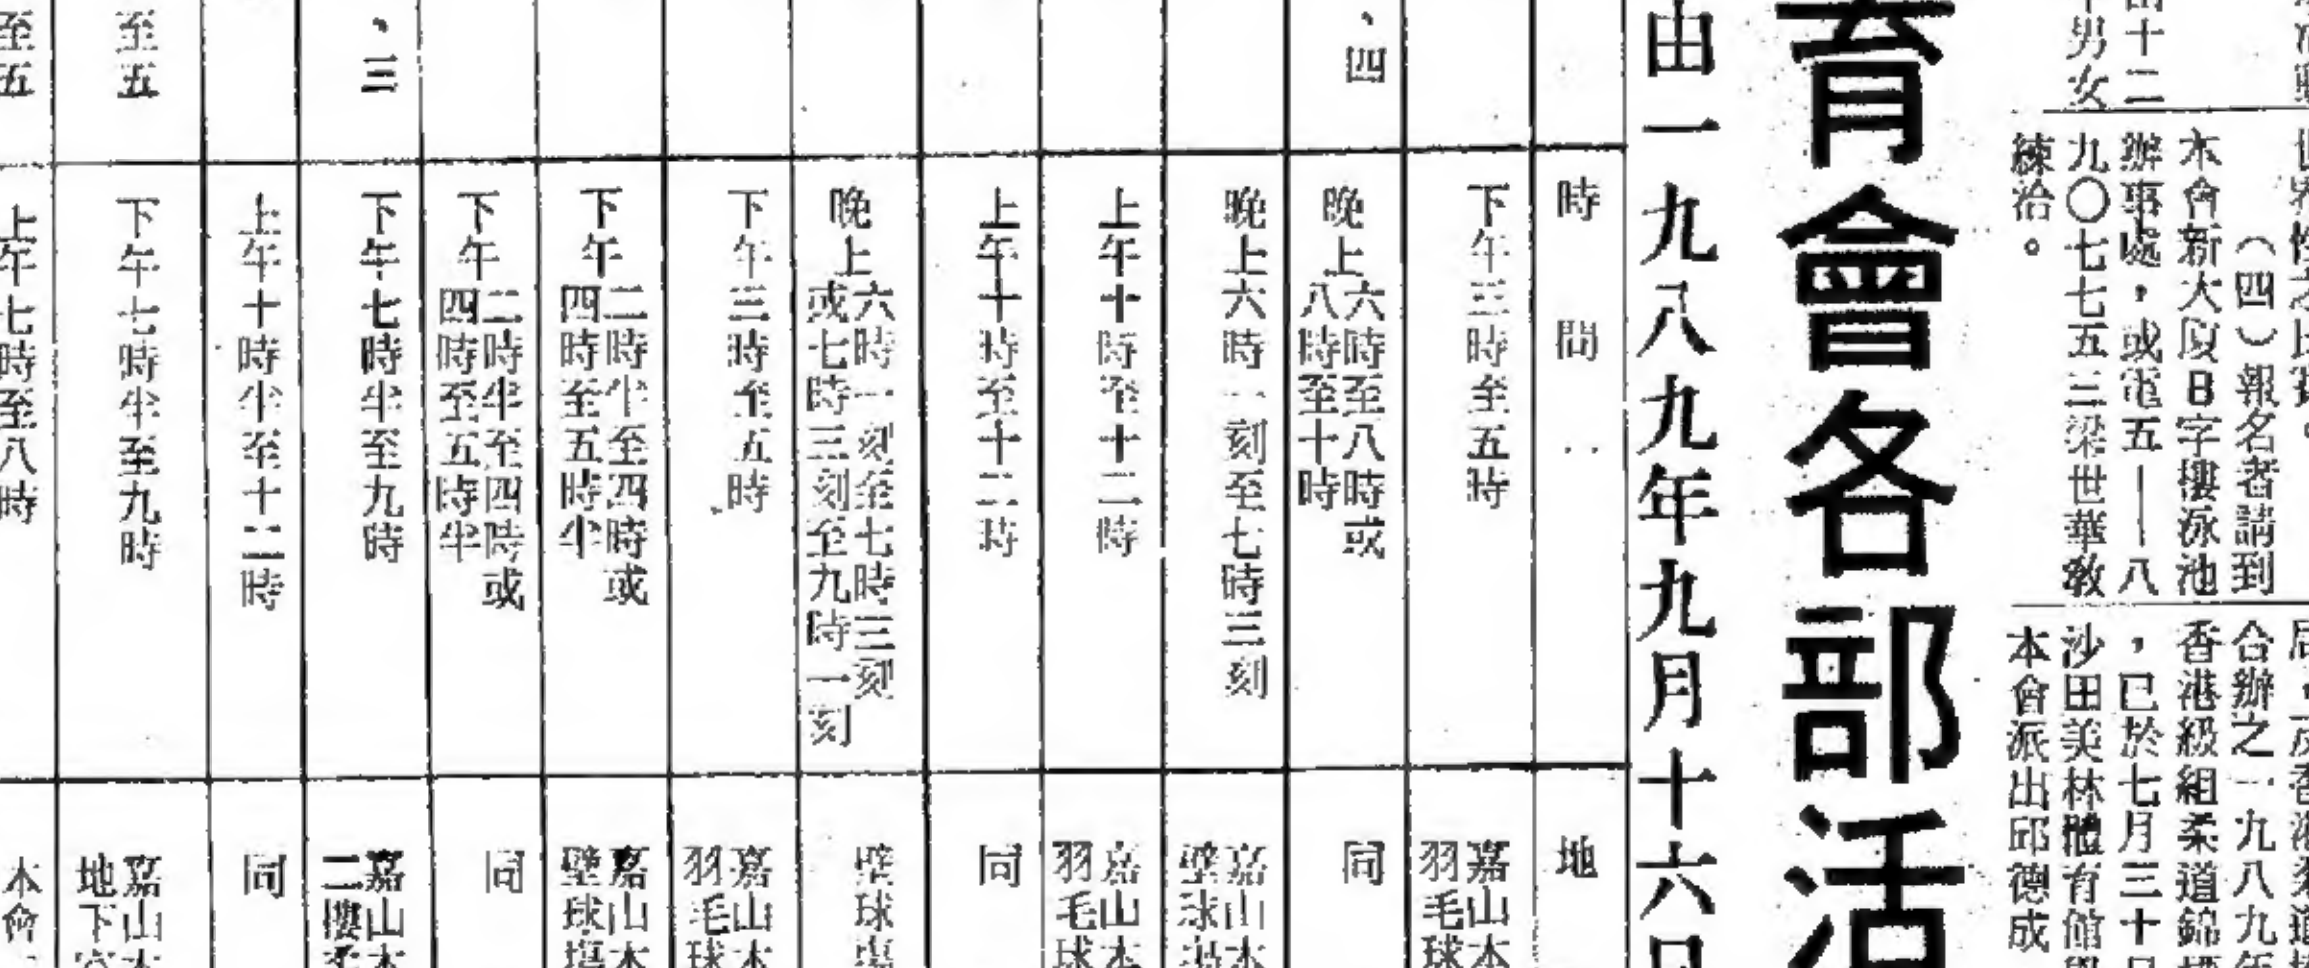 由十二
年男女
本會新大厦8字樓泳池
辦事處，或電五——八
九〇七七五三梁世華教
練洽。
（四）報名者請到
合辦之一九八九年
香港級組柔道錦標
，已於七月三十日
沙田美林體育館舉
本會派出邱德成
育會各部活
由一九八九年九月十六日
時間：
地
下午三時至五時
嘉山本
羽毛球
、四
晚上六時至八時或
八時至十時
同
晚上六時一刻至七時三刻
嘉山本
壁球場
上午十時至十二時
嘉山本
羽毛球
上午十時至十二時
同
晚上六時一刻至七時三刻
或七時三刻至九時一刻
壁球場
下午三時至五時
嘉山本
羽毛球
下午二時半至四時或
四時至五時半
嘉山本
壁球場
下午二時半至四時或
四時至五時半
同
、三
下午七時半至九時
嘉山本
二樓柔
上午十時半至十二時
同
至五
下午七時半至九時
嘉山本
地下
至五
上午七時至八時
本會